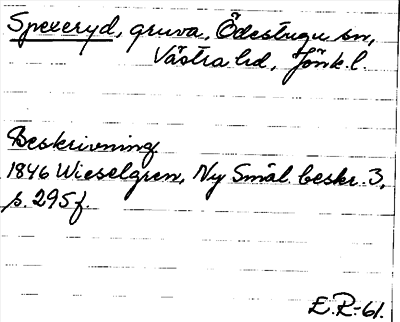 Spexeryd, gruva, Ödestugu sn,
Västra hd, Jönk. l.
Beskrivning
1846 Wieselgren, Ny Smål. beskr. 3,
s. 295f.
E.R-61.